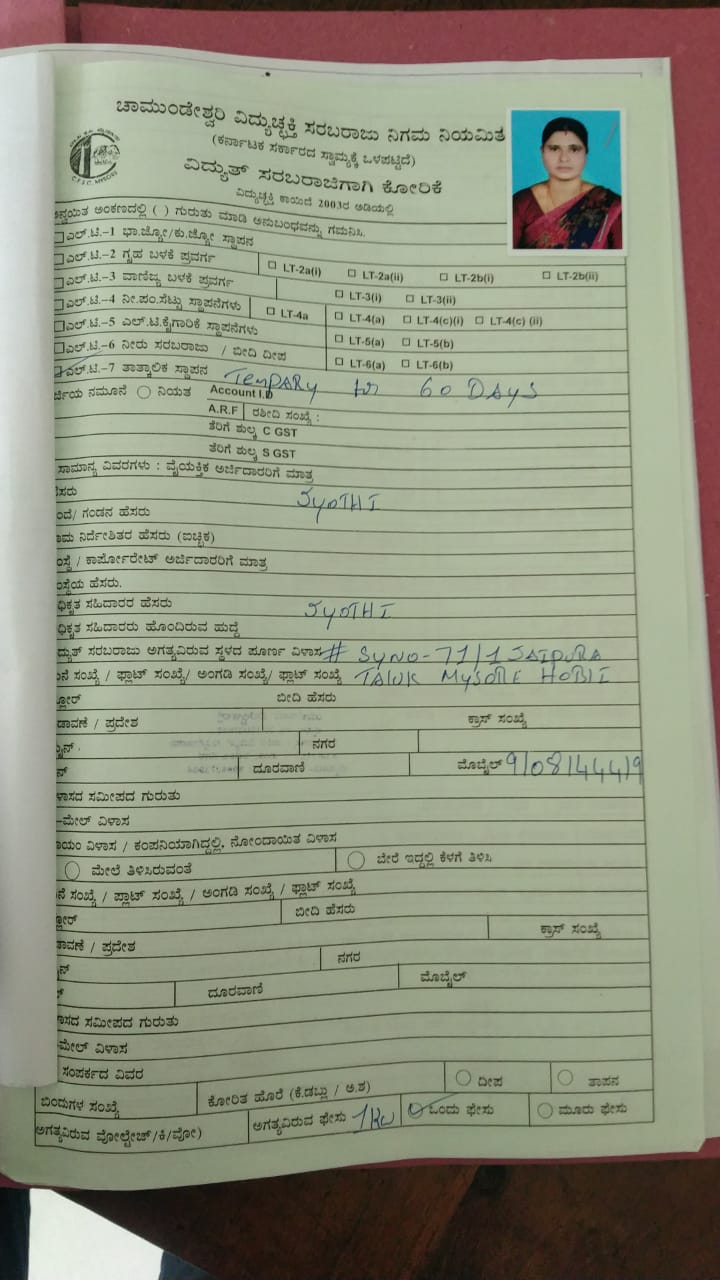 ಚಾಮುಂಡೇಶ್ವರಿ ವಿದ್ಯುಚ್ಛಕ್ತಿ ಸರಬರಾಜು ನಿಗಮ ನಿಯಮಿತ
(ಕರ್ನಾಟಕ ಸರ್ಕಾರದ ಸ್ವಾಮ್ಯಕ್ಕೆ ಒಳಪಟ್ಟಿದೆ)
ವಿದ್ಯುತ್ ಸರಬರಾಜಿಗಾಗಿ ಕೋರಿಕೆ
ವಿದ್ಯುಚ್ಛಕ್ತಿ ಕಾಯಿದೆ 2003ರ ಅಡಿಯಲ್ಲಿ
ಅನ್ವಯಿತ ಅಂಕಣದಲ್ಲಿ ( ) ಗುರುತು ಮಾಡಿ ಅನುಬಂಧವನ್ನು ಗಮನಿಸಿ.
ಎಲ್.ಟಿ.-1 ಭಾ.ಜ್ಯೋ/ಕು.ಜ್ಯೋ ಸ್ಥಾಪನ
ಎಲ್.ಟಿ.-2 ಗೃಹ ಬಳಕೆ ಪ್ರವರ್ಗ LT-2a(i) LT-2a(ii) LT-2b(i) LT-2b(ii)
ಎಲ್.ಟಿ.-3 ವಾಣಿಜ್ಯ ಬಳಕೆ ಪ್ರವರ್ಗ LT-3(i) LT-3(ii)
ಎಲ್.ಟಿ.-4 ನೀ.ಪಂ.ಸೆಟ್ಟು ಸ್ಥಾಪನೆಗಳು LT-4a LT-4(a) LT-4(c)(i) LT-4(c) (ii)
ಎಲ್.ಟಿ.-5 ಎಲ್.ಟಿ.ಕೈಗಾರಿಕೆ ಸ್ಥಾಪನೆಗಳು LT-5(a) LT-5(b)
ಎಲ್.ಟಿ.-6 ನೀರು ಸರಬರಾಜು / ಬೀದಿ ದೀಪ LT-6(a) LT-6(b)
ಎಲ್.ಟಿ.-7 ತಾತ್ಕಾಲಿಕ ಸ್ಥಾಪನ Tempary for 60 DAYS
ರ್ಜಿಯ ನಮೂನೆ ನಿಯತ Account I.D
A.R.F ರಶೀದಿ ಸಂಖ್ಯೆ :
ತೆರಿಗೆ ಶುಲ್ಕ C GST
ತೆರಿಗೆ ಶುಲ್ಕ S GST
ಸಾಮಾನ್ಯ ವಿವರಗಳು : ವೈಯಕ್ತಿಕ ಅರ್ಜಿದಾರರಿಗೆ ಮಾತ್ರ
ಹೆಸರು JYOTHI
ಂದೆ/ ಗಂಡನ ಹೆಸರು
ಾಮ ನಿರ್ದೇಶಿತರ ಹೆಸರು (ಐಚ್ಛಿಕ)
ಂಸ್ಥೆ / ಕಾರ್ಪೋರೇಟ್ ಅರ್ಜಿದಾರರಿಗೆ ಮಾತ್ರ
ಂಸ್ಥೆಯ ಹೆಸರು.
ಧಿಕೃತ ಸಹಿದಾರರ ಹೆಸರು JYOTHI
ಧಿಕೃತ ಸಹಿದಾರರು ಹೊಂದಿರುವ ಹುದ್ದೆ
ದ್ಯುತ್ ಸರಬರಾಜು ಅಗತ್ಯವಿರುವ ಸ್ಥಳದ ಪೂರ್ಣ ವಿಳಾಸ # SYNO-71/1 JAIPURA
ನೆ ಸಂಖ್ಯೆ / ಫ್ಲಾಟ್ ಸಂಖ್ಯೆ/ ಅಂಗಡಿ ಸಂಖ್ಯೆ/ ಫ್ಲಾಟ್ ಸಂಖ್ಯೆ TALUK MYSORE HOBLI
ಲ್ಲೋರ್ ಬೀದಿ ಹೆಸರು
ಡಾವಣೆ / ಪ್ರದೇಶ ಕ್ರಾಸ್ ಸಂಖ್ಯೆ
ನಗರ
ದೂರವಾಣಿ ಮೊಬೈಲ್ 9108144419
ಳಾಸದ ಸಮೀಪದ ಗುರುತು
-ಮೇಲ್ ವಿಳಾಸ
ಾಯಂ ವಿಳಾಸ / ಕಂಪನಿಯಾಗಿದ್ದಲ್ಲಿ, ನೋಂದಾಯಿತ ವಿಳಾಸ
ಮೇಲೆ ತಿಳಿಸಿರುವಂತೆ ಬೇರೆ ಇದ್ದಲ್ಲಿ ಕೆಳಗೆ ತಿಳಿಸಿ
ನೆ ಸಂಖ್ಯೆ / ಪ್ಲಾಟ್ ಸಂಖ್ಯೆ / ಅಂಗಡಿ ಸಂಖ್ಯೆ / ಫ್ಲಾಟ್ ಸಂಖ್ಯೆ
ಲ್ಲೋರ್ ಬೀದಿ ಹೆಸರು
ತಾವಣೆ / ಪ್ರದೇಶ ಕ್ರಾಸ್ ಸಂಖ್ಯೆ
ನಗರ
ದೂರವಾಣಿ ಮೊಬೈಲ್
ಾಸದ ಸಮೀಪದ ಗುರುತು
-ಮೇಲ್ ವಿಳಾಸ
ಸಂಪರ್ಕದ ವಿವರ ದೀಪ ತಾಪನ
ಬಿಂದುಗಳ ಸಂಖ್ಯೆ ಕೋರಿತ ಹೊರೆ (ಕೆ.ಡಬ್ಲು / ಅ.ಶ)
ಅಗತ್ಯವಿರುವ ವೋಲ್ಟೇಜ್/ಕಿ/ವೋ) ಅಗತ್ಯವಿರುವ ಫೇಸು 1KW ಒಂದು ಫೇಸು ಮೂರು ಫೇಸು